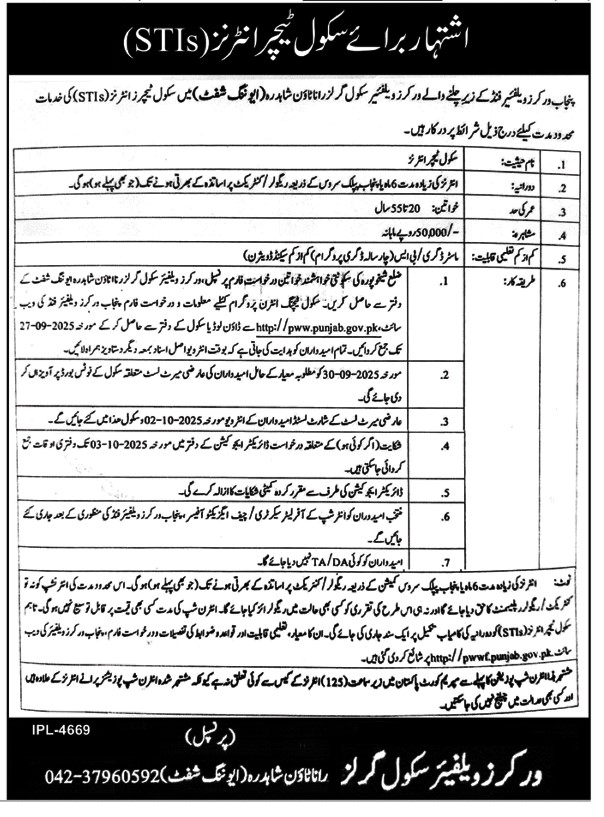 اشتہار برائے سکول ٹیچر انٹرنز (STIs)
پنجاب ورکرز ویلفیئر فنڈ کے زیر چلنے والے ورکرز ویلفیئر سکول گرلز رانا ٹاؤن شاہدرہ (ایوننگ شفٹ) میں سکول ٹیچرز انٹرنز (STIs) کی خدمات
محدود مدت کیلئے درج ذیل شرائط پر درکار ہیں۔
1. نام حیثیت: سکول ٹیچر انٹرنز
2. دورانیہ: انٹرنز کی زیادہ مدت 6 ماہ یا پنجاب پبلک سروس کے ذریعہ ریگولر / کنٹریکٹ پر اساتذہ کے بھرتی ہونے تک (جو بھی پہلے ہو) ہوگی۔
3. عمر کی حد خواتین: 20 تا 55 سال
4. مشاہرہ: 50,000/- روپے ماہانہ
5. کم از کم تعلیمی قابلیت: ماسٹر ڈگری / بی ایس (چار سالہ ڈگری پروگرام) کم از کم سیکنڈ ڈویژن)
6. طریقہ کار: 1. ضلع شیخوپورہ کی سکونتی خواہشمند خواتین درخواست فارم پرنسپل، ورکرز ویلفیئر سکول گرلز رانا ٹاؤن شاہدرہ ایوننگ شفٹ کے
دفتر سے حاصل کریں۔ سکول ٹیچنگ انٹرن پروگرام کیلئے معلومات و درخواست فارم پنجاب ورکرز ویلفیئر فنڈ کی ویب
سائٹ http://pww.punjab.gov.pk سے ڈاؤن لوڈ یا سکول کے دفتر سے حاصل کر کے مورخہ 27-09-2025
تک جمع کروائیں۔ تمام امیدواران کو ہدایت کی جاتی ہے کہ بوقت انٹرویو اصل اسناد بمعہ دیگر دستاویز ہمراہ لائیں۔
2. مورخہ 30-09-2025 کو مطلوبہ معیار کے حامل امیدواران کی عارضی میرٹ لسٹ متعلقہ سکول کے نوٹس بورڈ پر آویزاں کر
دی جائے گی۔
3. عارضی میرٹ لسٹ کے شارٹ لسٹڈ امیدواران کے انٹرویو مورخہ 02-10-2025 و سکول ھذا میں کئے جائیں گے۔
4. شکایت (اگر کوئی ہو) کے متعلقہ درخواست ڈائریکٹر ایجوکیشن کے دفتر میں مورخہ 03-10-2025 تک دفتری اوقات جمع
کروائی جاسکتی ہیں۔
5. ڈائریکٹر ایجوکیشن کی طرف سے مقرر کردہ کمیٹی شکایات کا ازالہ کرے گی۔
6. منتخب امیدواران کو انٹرنشپ کے آفر لیٹر سیکرٹری / چیف ایگزیکٹو آفیسر، پنجاب ورکرز ویلفیئر فنڈ کی منظوری کے بعد جاری کئے
جائیں گے۔
7. امیدواران کو کوئی TA/DA نہیں دیا جائے گا۔
نوٹ: انٹرنز کی زیادہ مدت 6 ماہ یا پنجاب پبلک سروس کمیشن کے ذریعہ ریگولر / کنٹریکٹ پر اساتذہ کے بھرتی ہونے تک (جو بھی پہلے ہو) ہوگی۔ اس محدود مدت کی انٹرنشپ کو نہ تو
کنٹریکٹ / ریگولر ایپلیمنٹ کا حق دیا جائے گا اور نہ ہی اس طرح کی تقرری کو کسی بھی حالت میں ریگولرائز کیا جائے گا۔ انٹرن شپ کی مدت کسی بھی قیمت پر قابل توسیع نہیں ہوگی۔ تاہم
سکول ٹیچر انٹرنز (STIs) کو دورانیہ کی کامیاب تکمیل پر ایک سند جاری کی جائے گی۔ ان کا معیار، تعلیمی قابلیت اور قواعد و ضوابط کی تفصیلات و درخواست فارم، پنجاب ورکرز ویلفیئر فنڈ کی ویب
سائٹ http://pwwf.punjab.gov.pk پر شائع کر دی گئی ہیں۔
مشتہر شدہ انٹرن شپ پوزیشن کا پہلے سے سپریم کورٹ پاکستان میں زیر سماعت (125) انٹرنز کے کیس سے کوئی تعلق نہ ہے کیونکہ مشتہر شدہ انٹرن شپ پوزیشنز پرانے انٹرنز کے علاوہ ہیں
اور کسی بھی عدالت میں چیلنج نہیں کی جاسکیں۔
IPL-4669
(پرنسپل)
ورکرز ویلفیئر سکول گرلز رانا ٹاؤن شاہدرہ (ایوننگ شفٹ) 042-37960592